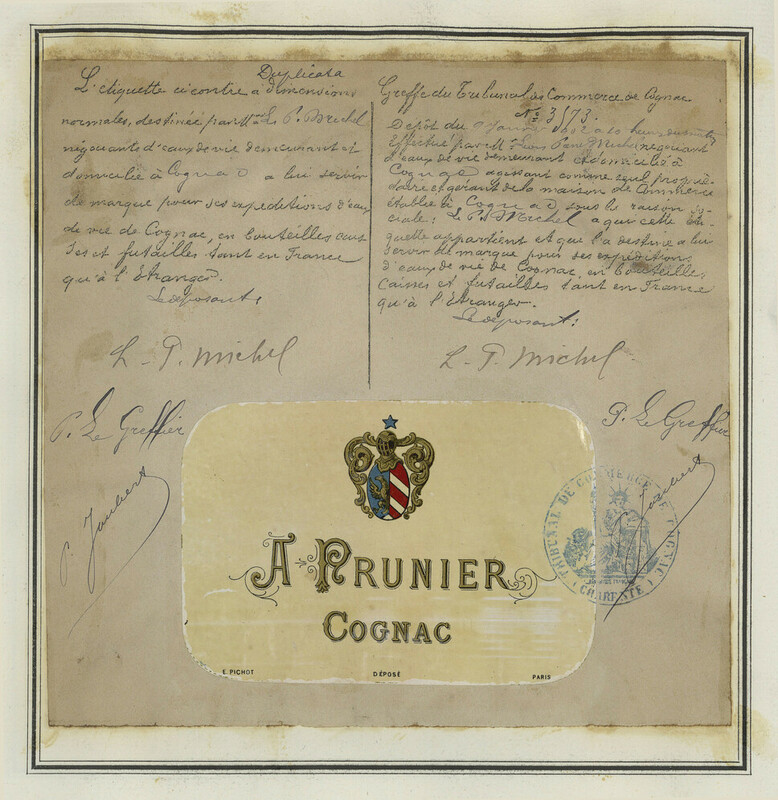 Duplicata
L'étiquette ci contre à dimensions
normales, destinée par Mr L. P. Michel
négociant d'eaux de vie demeurant et
domicilié à Cognac a lui servir
de marque pour ses expéditions d'eaux
de vie de Cognac, en bouteilles cais
ses et futailles tant en France
qu'à l'Etranger.
Le déposant,
L. P. Michel
P. Le Greffier
P. Joubert
Greffe du Tribunal de Commerce de Cognac
No 3573.
Dépôt du 9 Janvier à 10 heures du matin
Effectué par Mr Léon Paul Michel négociant
d'eaux de vie demeurant et domicilié à
Cognac agissant comme seul proprié-
taire et gérant de la maison de Commerce
établie à Cognac sous la raison so-
ciale: L. P. Michel a qui cette éti-
quette appartient et que l'a destiné a lui
servir de marque pour ses expéditions
d'eaux de vie de Cognac, en bouteilles,
caisses et futailles tant en France
qu'à l'Etranger.
Le déposant:
L. P. Michel.
P. Le Greffier
P. Joubert
A. PRUNIER
COGNAC
E. PICHOT DÉPOSÉ PARIS
TRIBUNAL DE COMMERCE DE COGNAC
(CHARENTE)